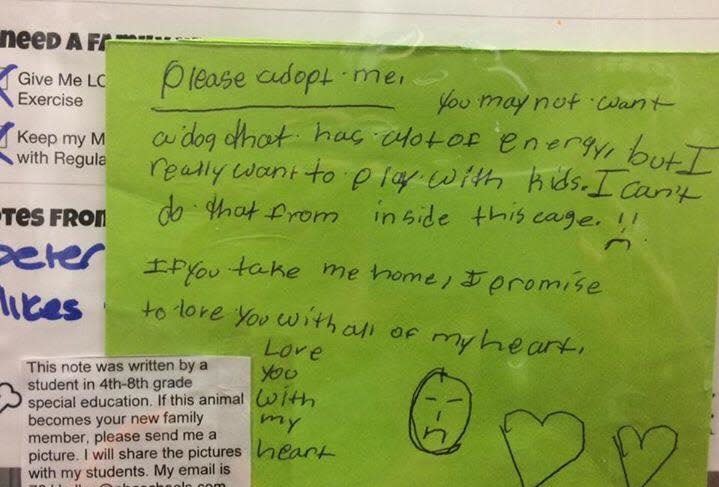 need A FA
Give Me LO
Exercise
Keep my M
with Regula
tes from
peter
likes
Please adopt me.
You may not want
a dog that has alot of energy, but I
really want to play with kids. I can't
do that from inside this cage. !!
If you take me home, I promise
to love you with all of my heart.
Love
you
with
my
heart
This note was written by a
student in 4th-8th grade
special education. If this animal
becomes your new family
member, please send me a
picture. I will share the pictures
with my students. My email is